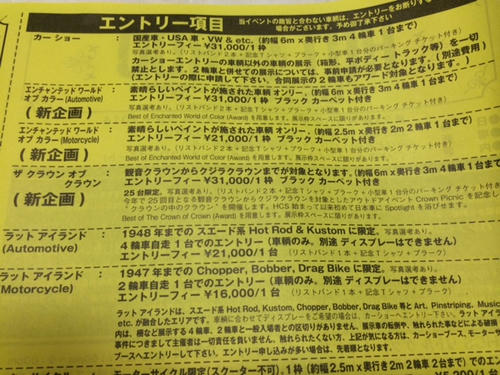 エントリー項目
当イベントの趣旨と合わない車輌は、エントリーをお断りする
予めご了承下さい
カーショー
国産車・USA車・VW & etc. (約幅6m x奥行き3m 4輪車1台まで)
エントリーフィー ¥31,000/1枠
カーショーエントリーの車輌以外の車輌の展示(箱形、平ボディー、トラック等)を一切
禁止とします。2輪車と併せての展示については、事前申請が必要となります。(別途費用)
(エントリーの際に申請して下さい。合同展示の2輪車もアワード対象となります。)
エンチャンテッド ワールド
オブ カラー (Automotive)
(新企画)
素晴らしいペイントが施された車輌 オンリー。(約幅6m x奥行き3m 4輪車1台まで)
エントリーフィー ¥31,000/1枠 ブラック カーペット付き
写真選考あり。(リストバンド2本+記念Tシャツ+ブラーク+小型車1台分のパーキング チケット付き)
Best of Enchanted World of Color (Award) を用意します。展示枠スペースに限りがあります。
エンチャンテッド ワールド
オブ カラー (Motorcycle)
(新企画)
素晴らしいペイントが施された車輌 オンリー。(約幅2.5m x奥行き2m 2輪車1台まで)
エントリーフィー ¥21,000/1枠 ブラック カーペット付き
写真選考あり。(リストバンド2本+記念Tシャツ+ブラーク+小型車1台分のパーキング チケット付き)
Best of Enchanted World of Color (Award) を用意します。展示枠スペースに限りがあります。
ザ クラウン オブ
クラウン
(新企画)
観音クラウンからクジラクラウンまでが対象となります。(約幅6m x奥行き3m 4輪車1台まで)
エントリーフィー ¥31,000/1枠 ブラック カーペット付き
25台限定。写真選考あり。(リストバンド2本+記念Tシャツ+ブラーク+小型車1台分のパーキング チケット付き)
今年で25回目となる観音クラウンからクジラクラウンを対象としたアウトドアイベント Crown Picnic を記念し
「クラウンの中のクラウン」を開催します。HCS 始まって以来初めて日本車に Spotlight を浴びせます。
Best of The Crown of Crown (Award) を用意します。展示枠スペースに限りがあります。
ラット アイランド
(Automotive)
1948年までの スエード系 Hot Rod & Kustom に限定。写真選考あり。
4輪車自走1台でのエントリー(車輌のみ。別途 ディスプレーはできません)
エントリーフィー ¥21,000/1台 (リストバンド1本+記念Tシャツ+ブラーク)
ラット アイランド
(Motorcycle)
1947年までの Chopper, Bobber, Drag Bike に限定。写真選考あり。
2輪車自走1台でのエントリー(車輌のみ。別途 ディスプレーはできません)
エントリーフィー ¥16,000/1台 (リストバンド1本+記念Tシャツ+ブラーク)
ラット アイランドは、スエード系 Hot Rod, Kustom, Chopper, Bobber, Drag Bike 等と Art, Pinstriping, Music
etc. が融合したエリアです。
内は、柵など展示する4輪車、2輪車と一般入場者との区切りがありません。展示車の転倒や、触れられた事などによる破損
事件につきまして主催者は一切責任を負いません。触れられたくない方、上記が気になる方は、カーショーブース、モーターサイ
ブースへエントリーして下さい。エントリー申し込みが多い場合は、先着順となります。
モーターサイクル限定(スクーター不可)。1枠(約幅2.5m x奥行き2m 2輪車1台まで)